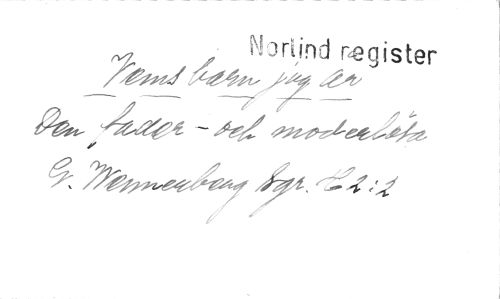 Norlind register
Vems barn jag är
Den fader- och moderlösa
G. Wennerberg Sgr. H 2:2